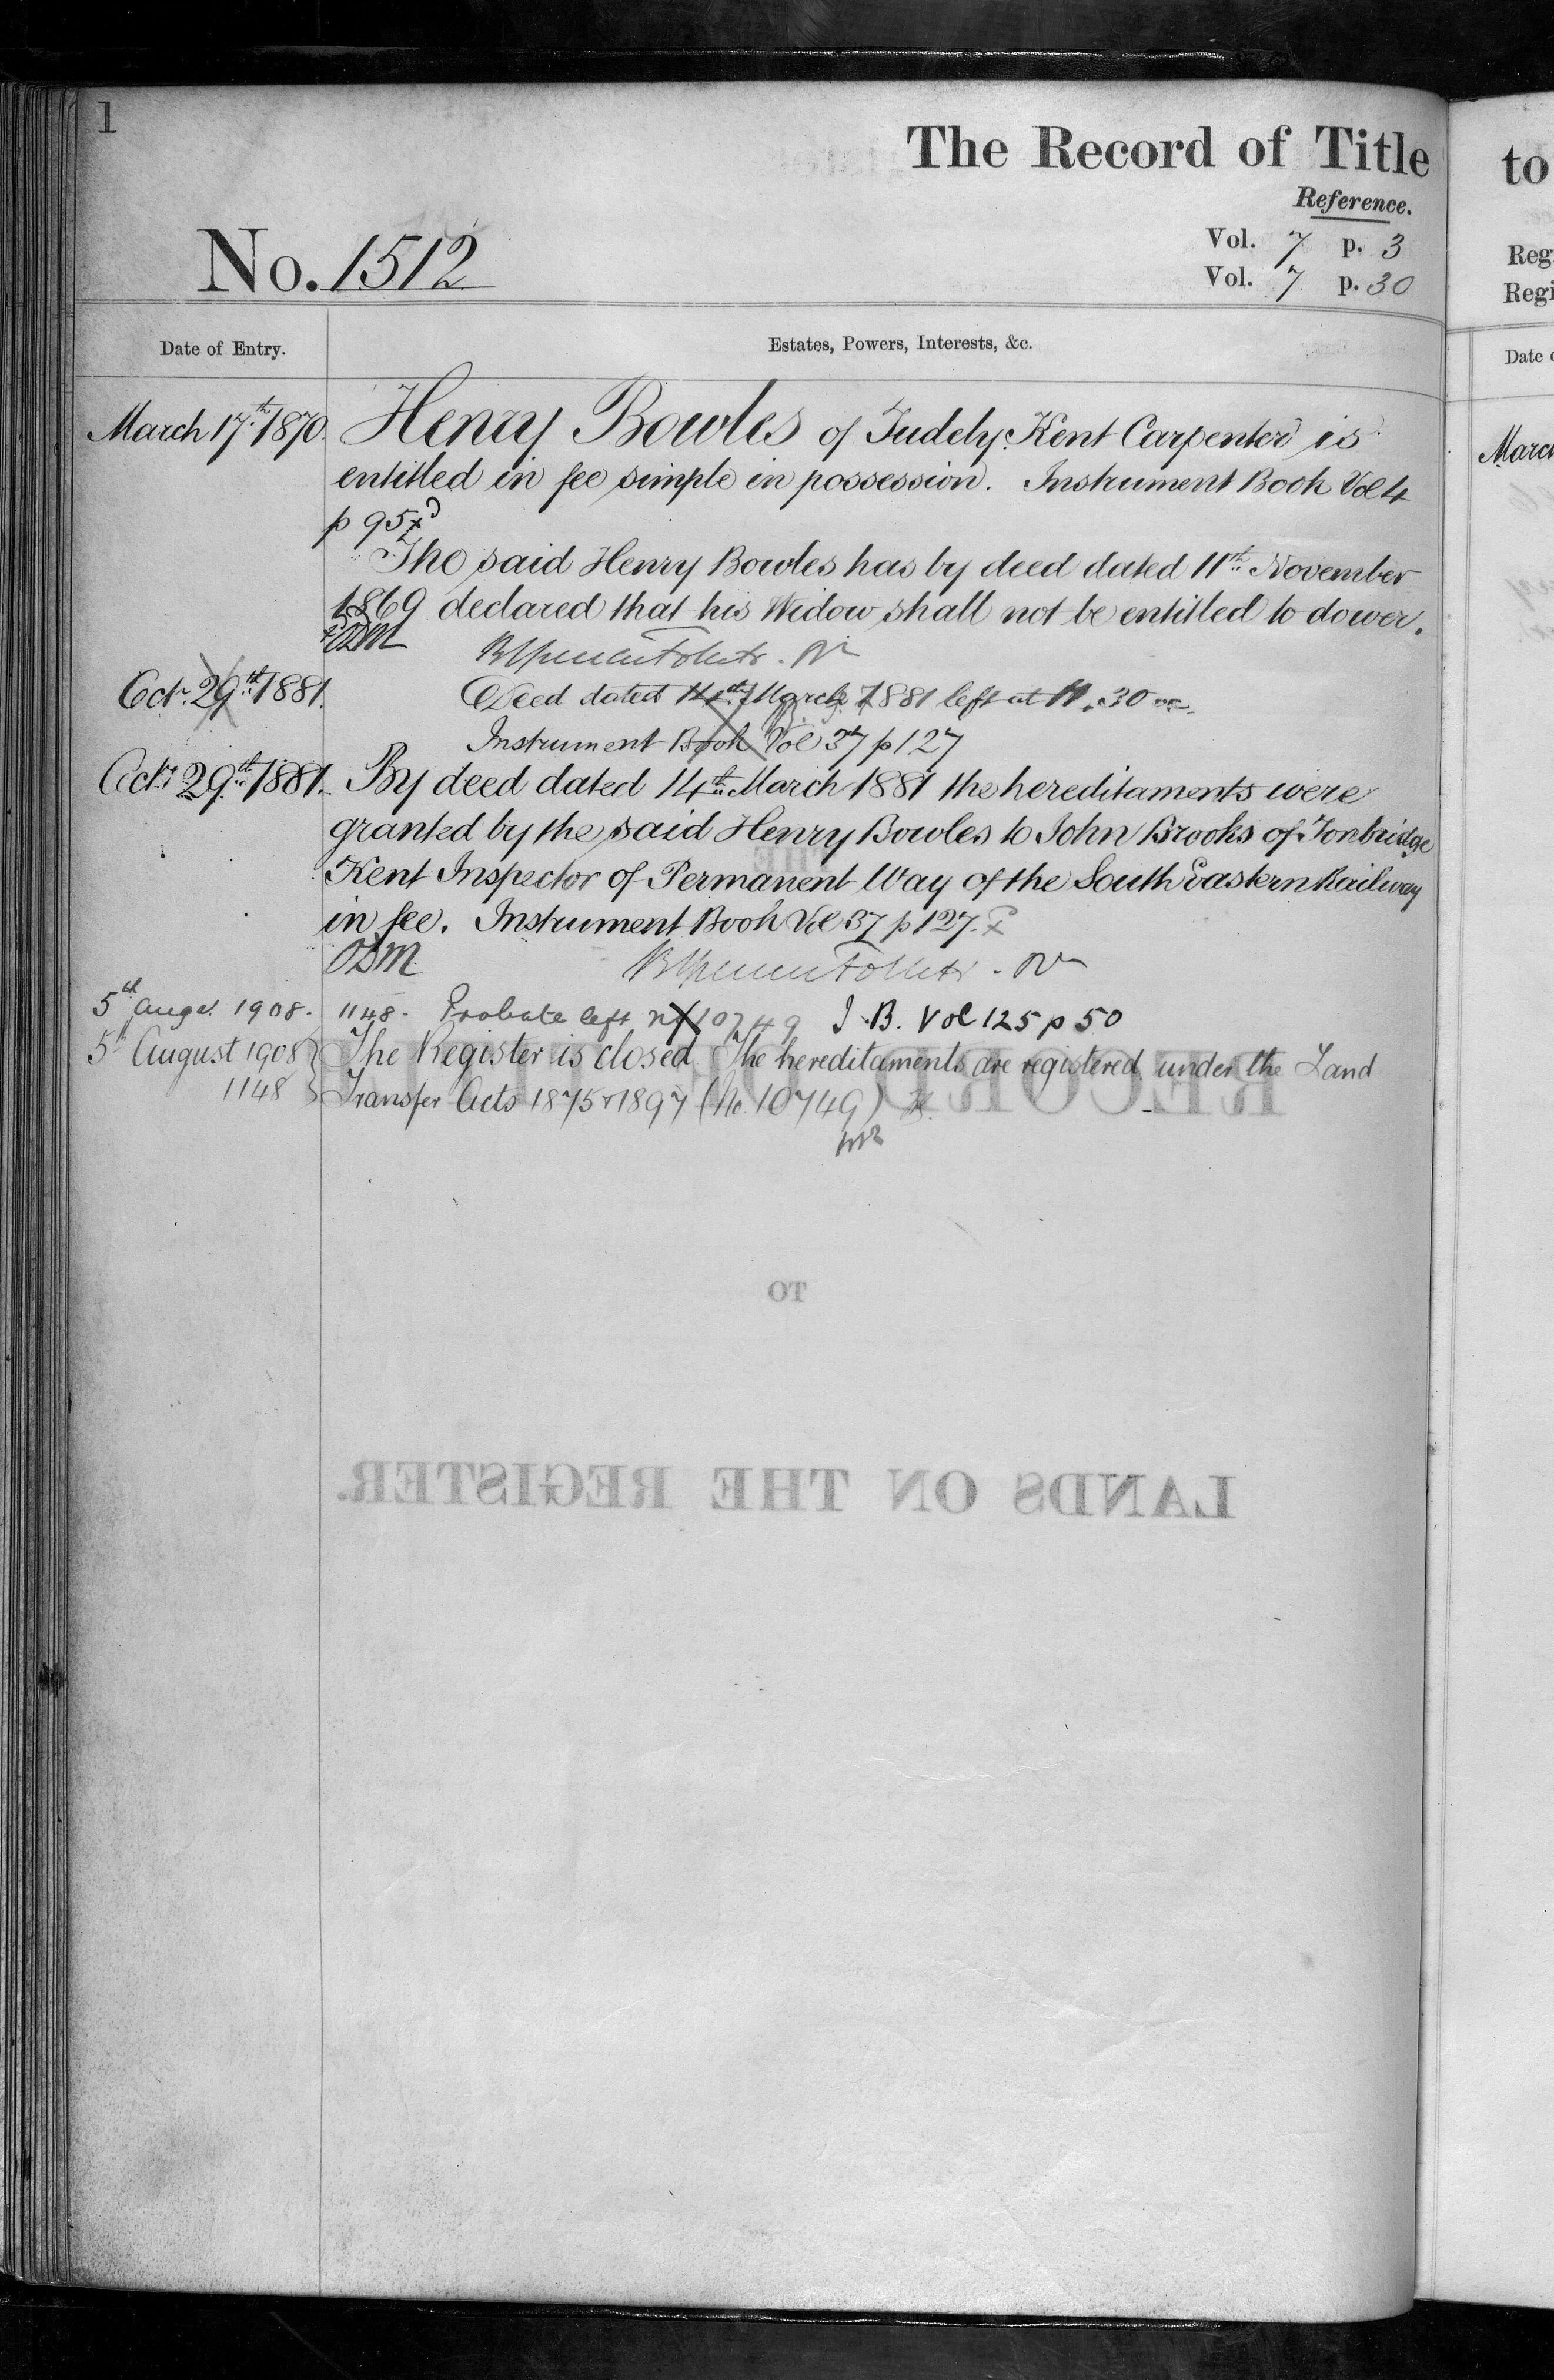 1
The Record of Title
Reference.
Vol. 7 p. 3
No. 1512
Vol. 7 p. 30
Date of Entry.
Estates, Powers, Interests, &c.
March 17th 1870. Henry Bowles of Tudely Kent Carpenter is
entitled in fee simple in possession. Instrument Book Vol 4
p 95
The said Henry Bowles has by deed dated 11th November
1869 declared that his Widow shall not be entitled to dower.
ODM
Octr 29th 1881. Deed dated 14th March 1881 left at 11.30
Instrument Book Vol 37 p 127
Octr 29th 1881. By deed dated 14th March 1881 the hereditaments were
granted by the said Henry Bowles to John Brooks of Tonbridge
Kent Inspector of Permanent Way of the South Eastern Railway
in fee. Instrument Book Vol 37 p 127.
ODM
5th Augt 1908. 1148. Probate left 10749 I.B. Vol 125 p 50
5th August 1908 The Register is closed The hereditaments are registered under the Land
1148 Transfer Acts 1875 & 1897 (No. 10749)
THE
RECORD OF TITLE
TO
LANDS ON THE REGISTER.
to
Reg
Regi
Date
March